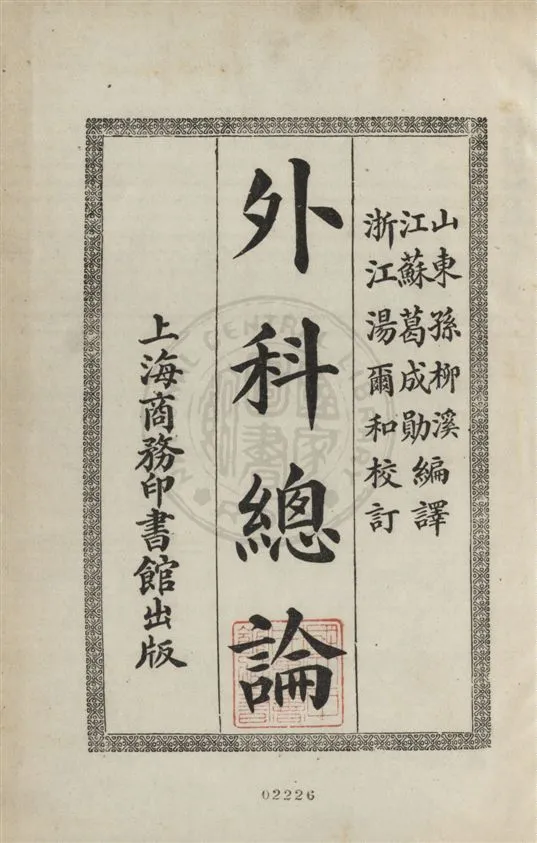 山東孫柳溪
江蘇葛成勛編譯
浙江湯爾和校訂
外科總論
上海商務印書館出版
02226